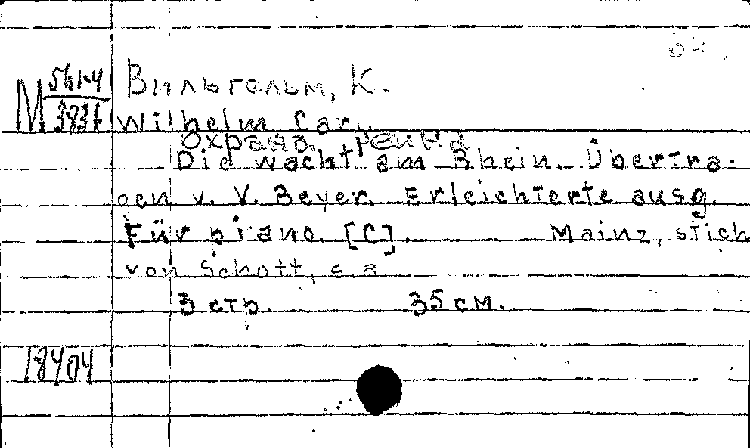 M 561-4
3831
Вильгельм, К.
Wilhelm Car.
Охрана Рейна
Die Wacht am Rhein. Übertra-
gen v. V. Beyer. Erleichterte ausg.
Für piano. [C]. Mainz, stich
von Schott, s.a.
3 стр. 35 см.
18404